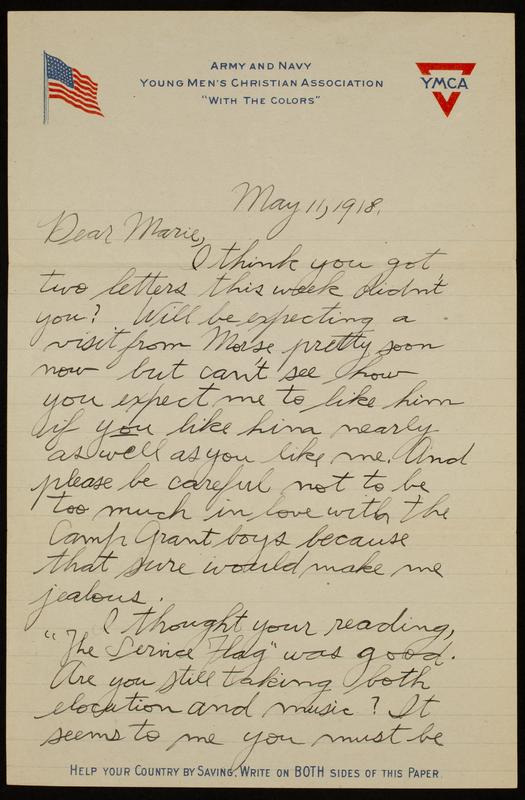 ARMY AND NAVY
YOUNG MEN'S CHRISTIAN ASSOCIATION
"WITH THE COLORS"
YMCA
May 11, 1918.
Dear Marie,
I think you got
two letters this week didn't
you? Will be expecting a
visit from Morse pretty soon
now but can't see how
you expect me to like him
if you like him nearly
as well as you like me. And
please be careful not to be
too much in love with the
Camp Grant boys because
that sure would make me
jealous.
I thought your reading,
"The Service Flag" was good.
Are you still taking both
elocution and music? It
seems to me you must be
HELP YOUR COUNTRY BY SAVING. WRITE ON BOTH SIDES OF THIS PAPER